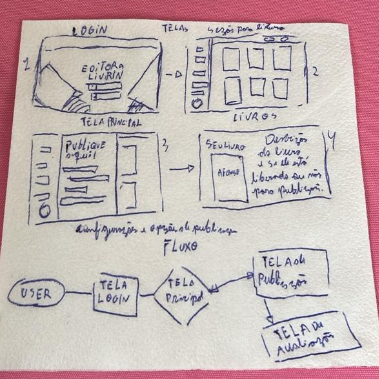 LOGIN
TELAS
1
EDITORA
LIVRIN
2
TELA PRINCIPAL
LIVROS
PUBLIQUE
AQUI
3
SEU LIVRO
4
do livro
e se está
liberado ou não
para publicação.
configurações e opção de publicar
FLUXO
USER
TELA
LOGIN
TELA
Principal
TELA de
Publicação
TELA DE